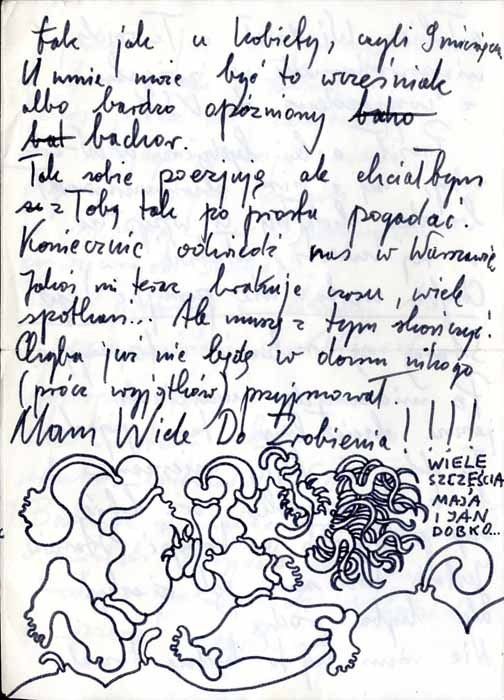 tak jak u kobiety, czyli 9 miesięcy
U mnie może być to wcześniak
albo bardzo opóźniony bahο
bat bachor.
Tak sobie poezyję ale chciałbym
się z Tobą tak po prostu pogadać.
Koniecznie odwiedź nas w Warszawie
Jakoś mi teraz brakuje czasu, wiele
spotkań... Ale muszę z tym skończyć!
Chyba już nie będę w domu nikogo
(prócz wyjątków) przyjmował.
Mam Wiele Do Zrobienia!!!!
WIELE
SZCZĘŚCIA
MAJA
I JAN
DOBKO...